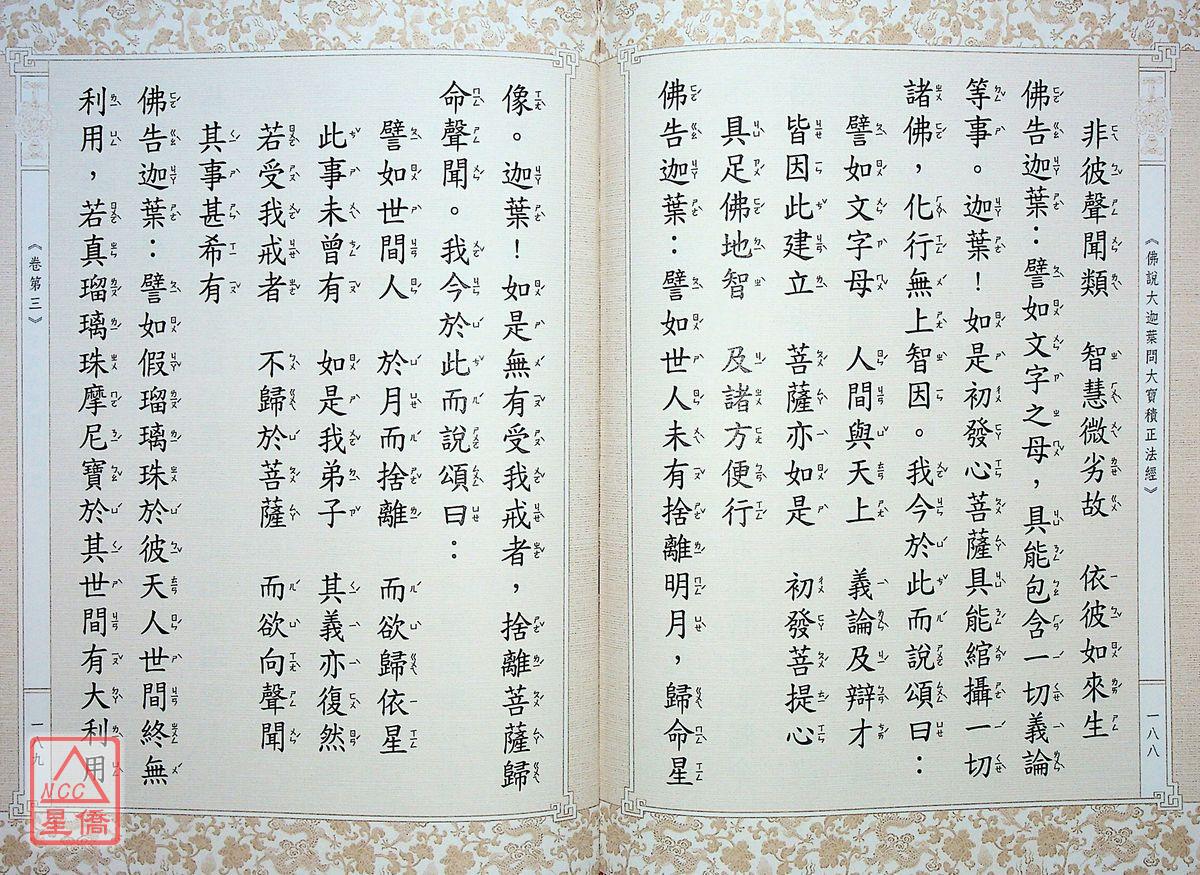 《佛說大迦葉問大寶積正法經》
一八八
非彼聲聞類　智慧微劣故　依彼如來生
佛告迦葉：譬如文字之母，具能包含一切義論
等事。迦葉！如是初發心菩薩具能綰攝一切
諸佛，化行無上智因。我今於此而說頌曰：
譬如文字母　人間與天上　義論及辯才
皆因此建立　菩薩亦如是　初發菩提心
具足佛地智　及諸方便行
佛告迦葉：譬如世人未有捨離明月，歸命星
像。迦葉！如是無有受我戒者，捨離菩薩歸
命聲聞。我今於此而說頌曰：
譬如世間人　於月而捨離　而欲歸依星
此事未曾有　如是我弟子　其義亦復然
若受我戒者　不歸於菩薩　而欲向聲聞
其事甚希有
佛告迦葉：譬如假瑠璃珠於彼天人世間終無
利用，若真瑠璃珠摩尼寶於其世間有大利用
《卷第三》
一八九
NCC
星僑